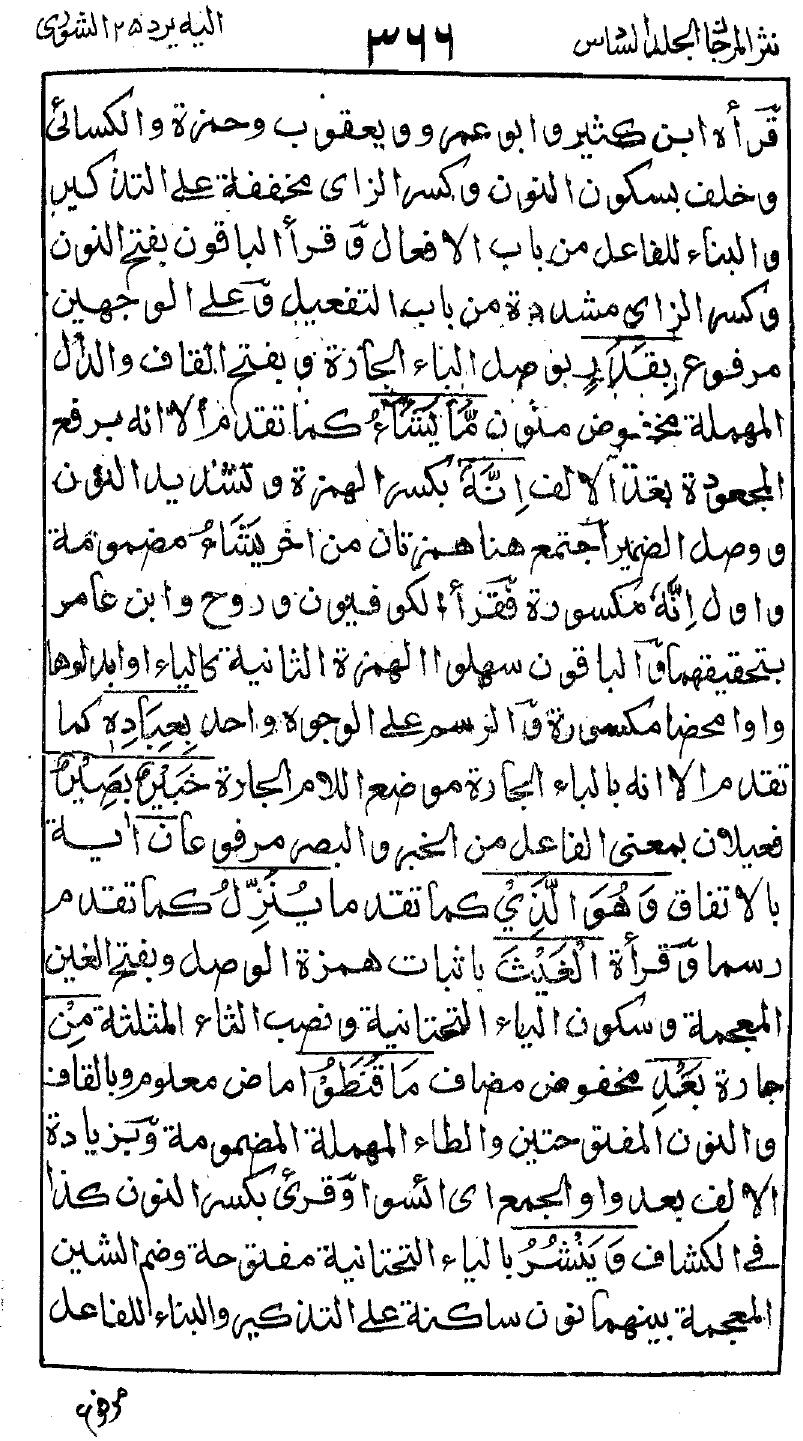 نثر المرجان الجلد السادس ٣٦٦ اليه يرد ٢٥ الشورى
قرأه ابن كثير وابو عمرو ويعقوب وحمزة والكسائى
وخلف بسكون النون وكسر الزاى مخففة على التذكير
والبناء للفاعل من باب الافعال وقرأ الباقون بفتح النون
وكسر الزاى مشددة من باب التفعيل وعلى الوجهين
مرفوع بِقَدَرٍ بوصل الباء الجارة وبفتح القاف والدال
المهملة مخفوض منون مَّا يَشَاءُ كما تقدم الا انه برفع
المجعودة بعد الالف اِنَّهٗ بكسر الهمزة وتشديد النون
ووصل الضمير اجتمع هنا همزتان من اخر يَشَاءُ مضمومة
واول اِنَّهٗ مكسورة فقرأ الكوفيون وروح وابن عامر
بتحقيقهما والباقون سهلوا الهمزة الثانية كالياء او ابدلوها
واوا محضا مكسورة والرسم على الوجوه واحد بِعِبَادِهٖ كما
تقدم الا انه بالباء الجارة موضع اللام الجارة خَبِيْرٌ بَصِيْرٌ
فعيلان بمعنى الفاعل من الخبر والبصر مرفوعان اية
بالاتفاق وَهُوَ الَّذِيْ كما تقدم يُنَزِّلُ كما تقدم
رسما وقرأة الْغَيْثَ باثبات همزة الوصل وبفتح الغين
المعجمة وسكون الياء التحتانية ونصب الثاء المثلثة مِنْ
جارة بَعْدِ مخفوض مضاف مَا قَنَطُوْا ماض معلوم وبالقاف
والنون المفتوحتين والطاء المهملة المضمومة وبزيادة
الالف بعد واو الجمع اى ائسوا وقرئ بكسر النون كذا
فى الكشاف وَيَنْشُرُ بالياء التحتانية مفتوحة وضم الشين
المعجمة بينهما نون ساكنة على التذكير والبناء للفاعل
مرفوع